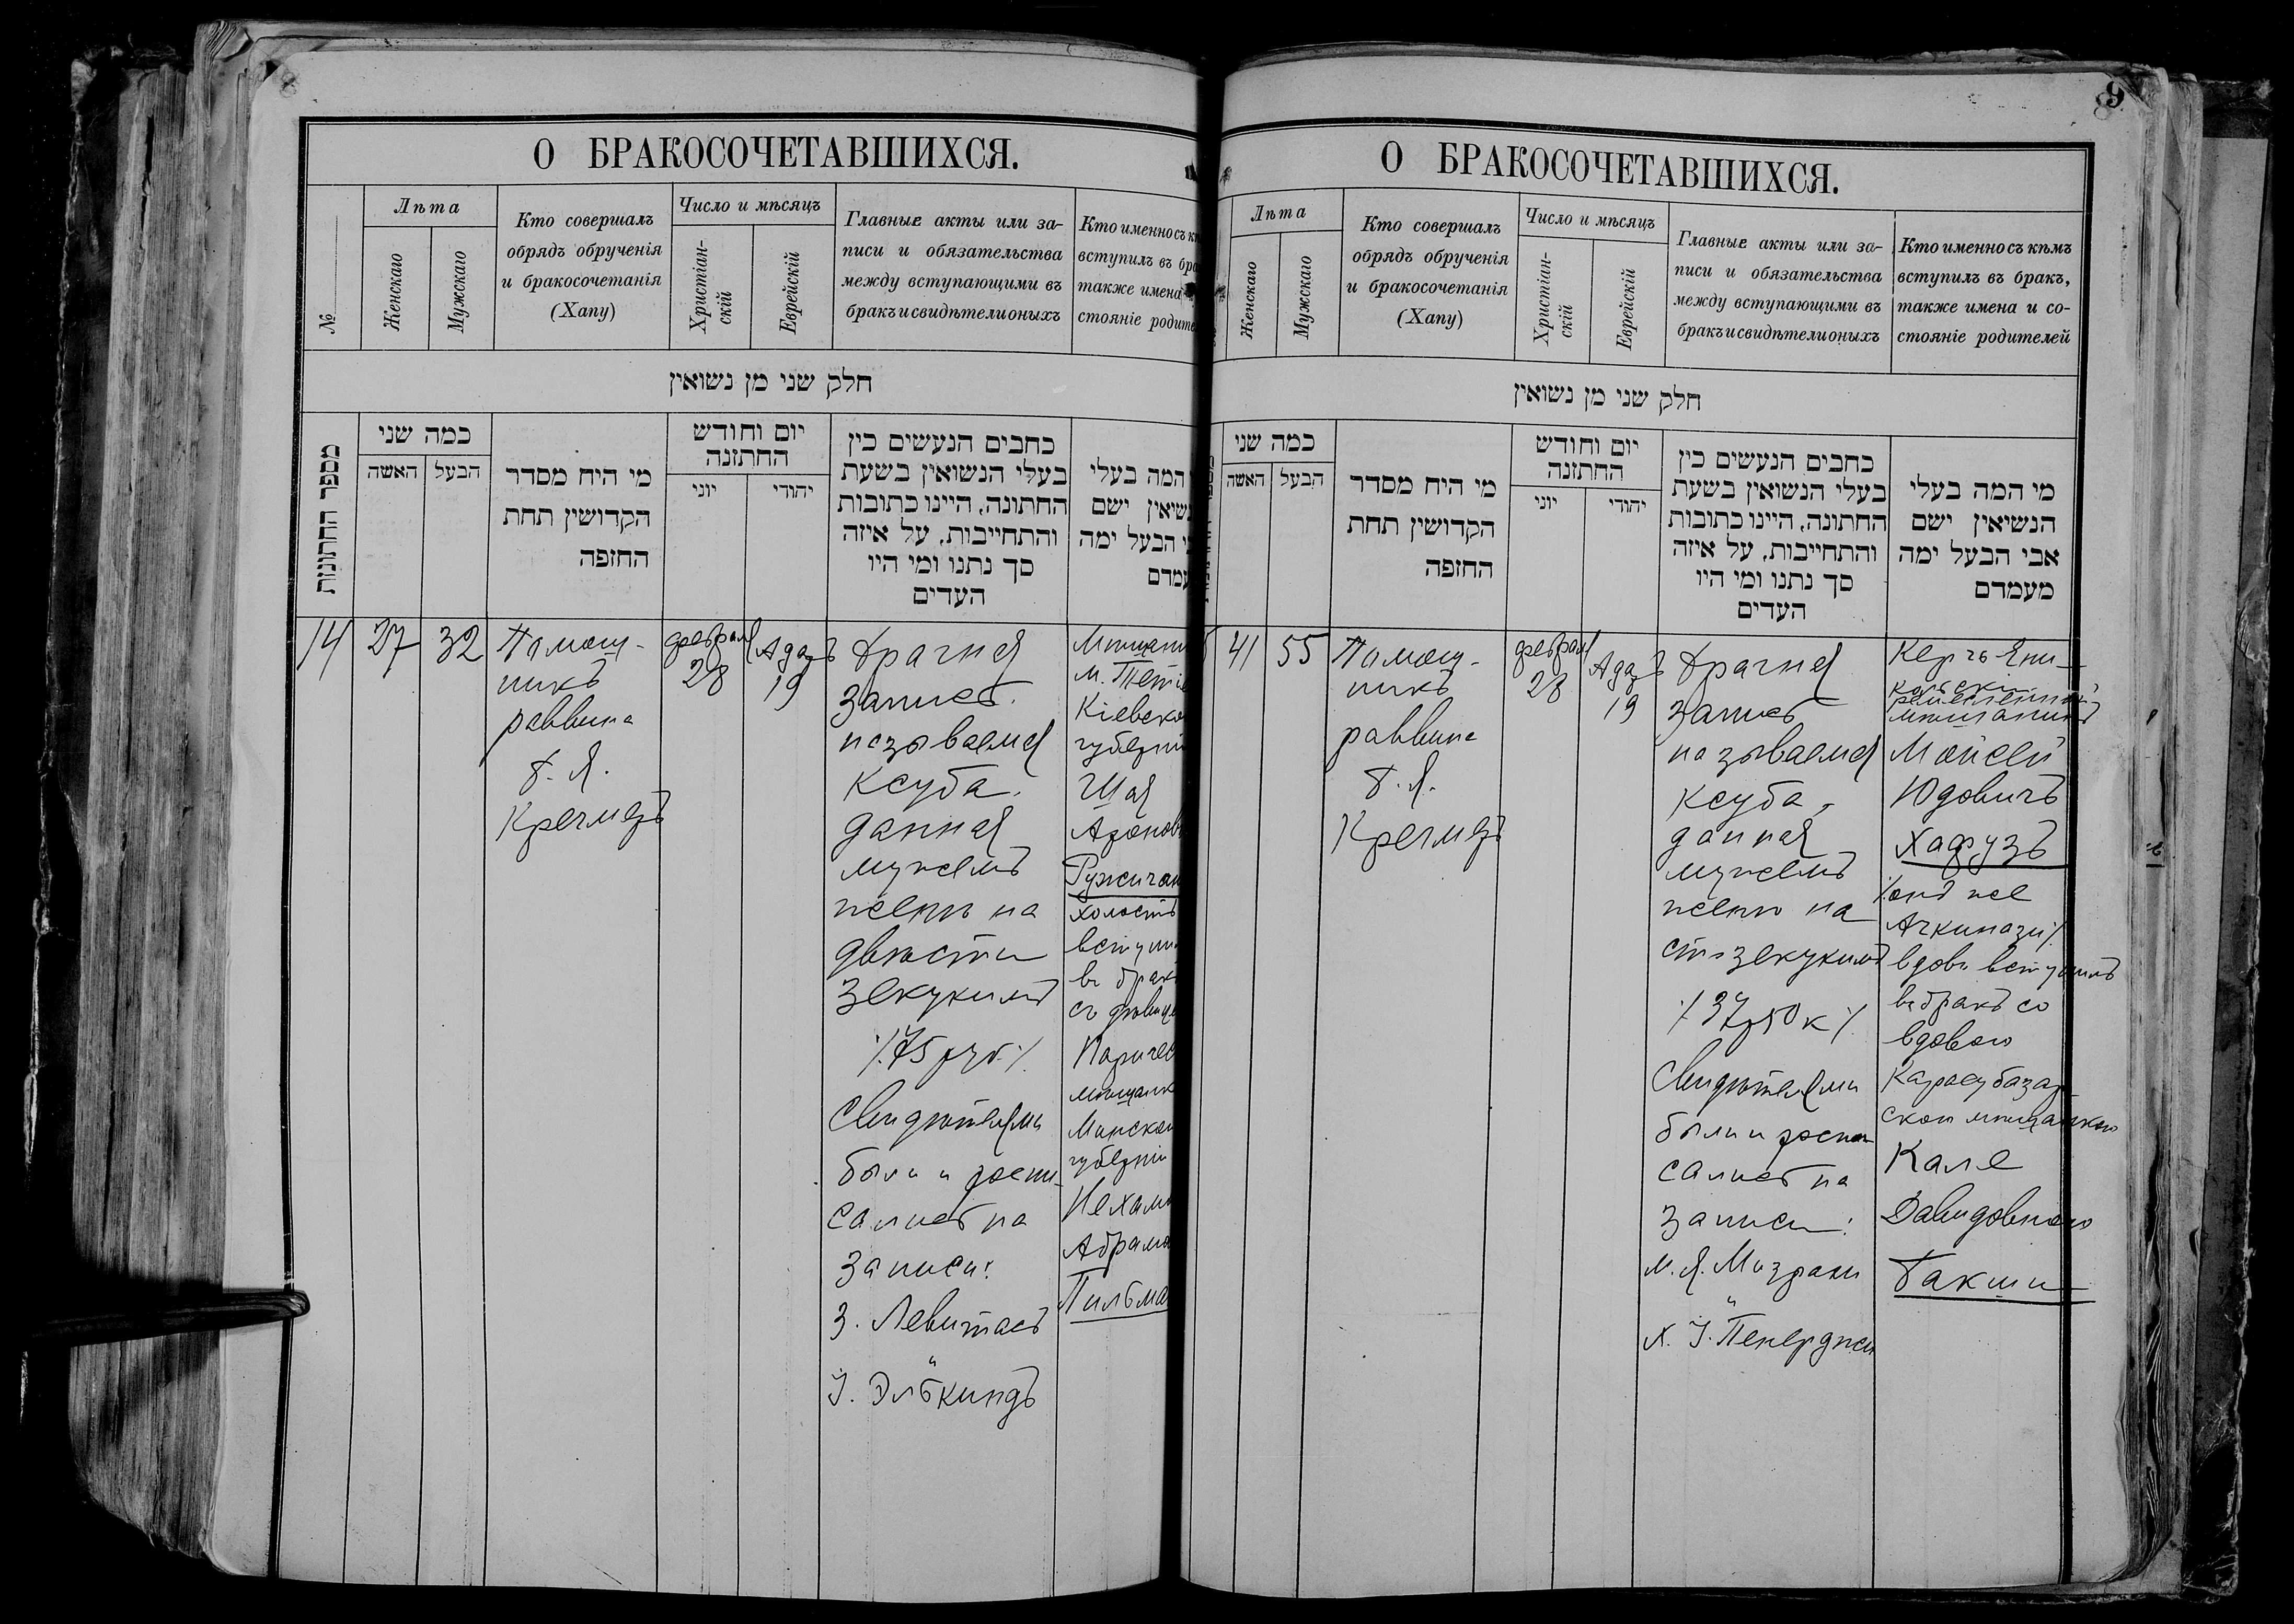 9
О БРАКОСОЧЕТАВШИХСЯ.
№
Лѣта
Женскаго
Мужскаго
Кто совершалъ
обрядъ обрученія
и бракосочетанія
(Хапу)
Число и мѣсяцъ
Христіан-
скій
Еврейскій
Главные акты или за-
писи и обязательства
между вступающими въ
бракъ и свидѣтели оныхъ
Кто именно съ
вступилъ въ
также имена
стояніе
חלק שני מן נשואין
מספר החתונות
כמה שני
האשה
הבעל
מי היח מסדר
הקדושין תחת
החזפה
יום וחודש
החתזנה
יוני
יהודי
כחבים הנעשים כין
בעלי הנשואין בשעת
החתונה, היינו כתובות
והתחייבות, על איזה
סך נתנו ומי היו
העדים
המה בעלי
ישם
הבעל ימה
14
27
32
Помощ-
никъ
раввина
Б. Я.
Кречмеръ
февраля
28
Адаръ
19
Брачная
запись
называемая
ксуба.
данная
мужемъ
женѣ на
двѣсти
зекукимъ
٪75 руб٪.
Свидѣтелями
были и распи-
сались на
записи:
З. Левитасъ
и
І. Элькиндъ
м.
губерніи
Шая
холостъ
въ
съ
губерніи
О БРАКОСОЧЕТАВШИХСЯ.
Лѣта
Женскаго
Мужскаго
Кто совершалъ
обрядъ обрученія
и бракосочетанія
(Хапу)
Число и мѣсяцъ
Христіан-
скій
Еврейскій
Главные акты или за-
писи и обязательства
между вступающими въ
бракъ и свидѣтели оныхъ
Кто именно съ кѣмъ
вступилъ въ бракъ,
также имена и со-
стояніе родителей
חלק שני מן נשואין
כמה שני
האשה
הבעל
מי היח מסדר
הקדושין תחת
החזפה
יום וחודש
החתזנה
יוני
יהודי
כחבים הנעשים כין
בעלי הנשואין בשעת
החתונה, היינו כתובות
והתחייבות, על איזה
סך נתנו ומי היו
העדים
מי המה בעלי
הנשיאין ישם
אבי הבעל ימה
מעמדם
41
55
Помощ-
никъ
раввина
Б. Я.
Кречмеръ
февраля
28
Адаръ
19
Брачная
запись
называемая
ксуба,
данная
мужемъ
женѣ на
сто зекукимъ
٪37р50к٪.
Свидѣтелями
были и распи-
сались на
записи:
М. Я. Мизрахи
и
Х. І. Пенерджи
Керчь-Ени-
кольскій
ремесленный
мѣщанинъ
Мойсей
Юдовичъ
Хафузъ
٪онъ же
Ачкинази٪.
вдовъ вступилъ
въ бракъ со
вдовою
Карасубазар-
ской мѣщанкою
Кале
Давидовною
Бакши